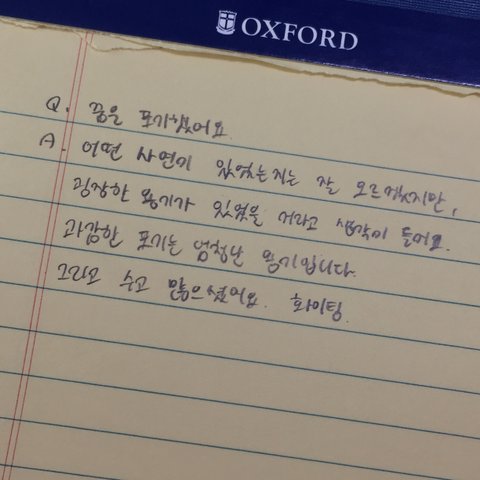 OXFORD
Q. 꿈을 포기했어요.
A. 어떤 사연이 있었는지는 잘 모르겠지만,
굉장한 용기가 있었을 거라고 생각이 들어요.
과감한 포기는 엄청난 용기입니다.
그리고 수고 많으셨어요. 화이팅.